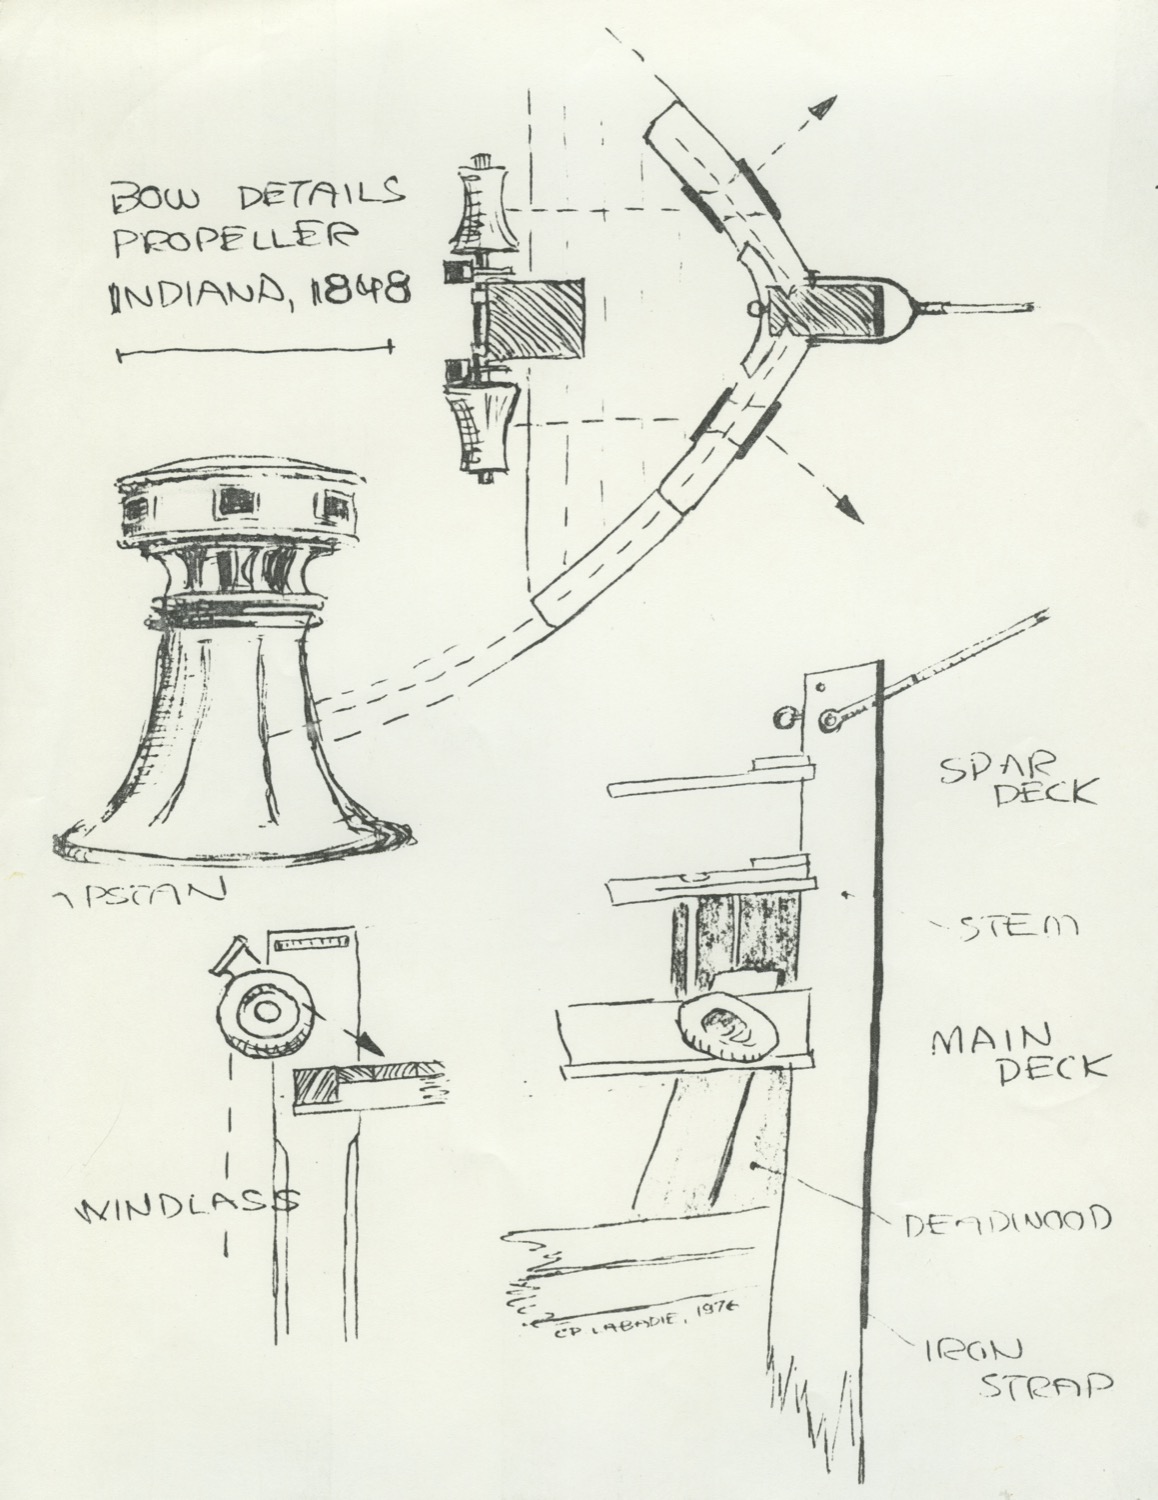 BOW DETAILS
PROPELLER
INDIANA, 1848
APSTAN
WINDLASS
SPAR
DECK
STEM
MAIN
DECK
DEADWOOD
CP LABADIE, 1976
IRON
STRAP